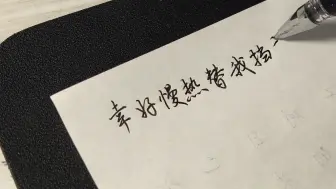 幸好慢热替我挡